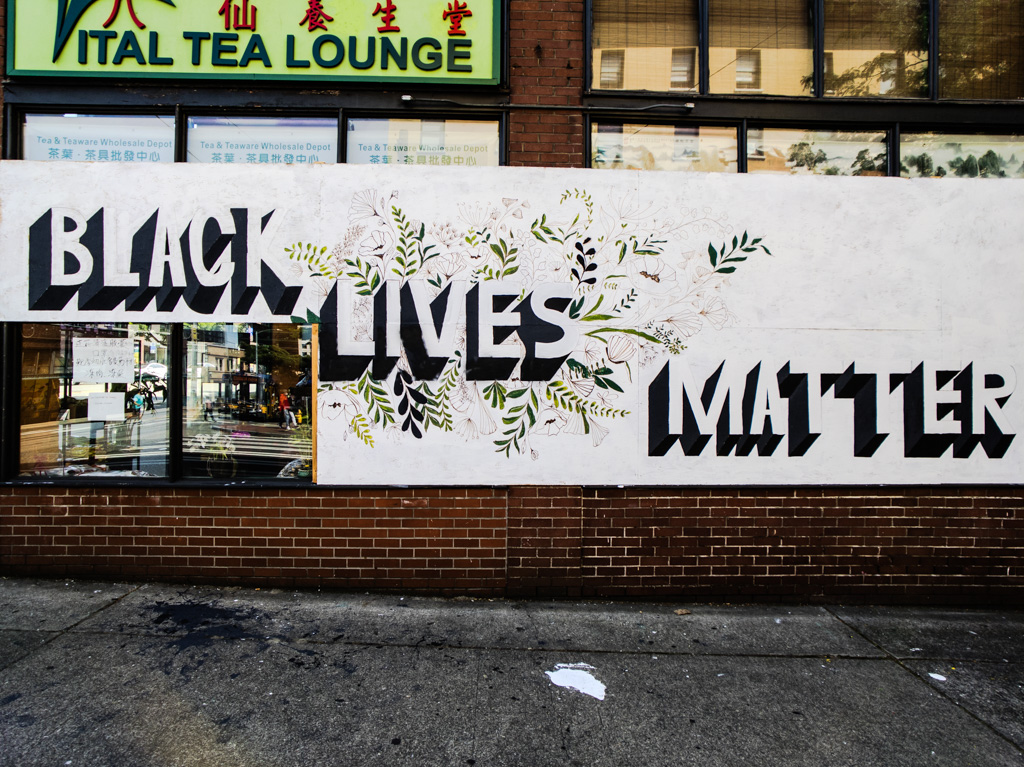 八仙養生堂
VITAL TEA LOUNGE
Tea & Teaware Wholesale Depot
茶葉·茶具批發中心
Tea & Teaware Wholesale Depot
茶葉·茶具批發中心
Tea & Teaware Wholesale Depot
茶葉·茶具批發中心
BLACK
LIVES
MATTER